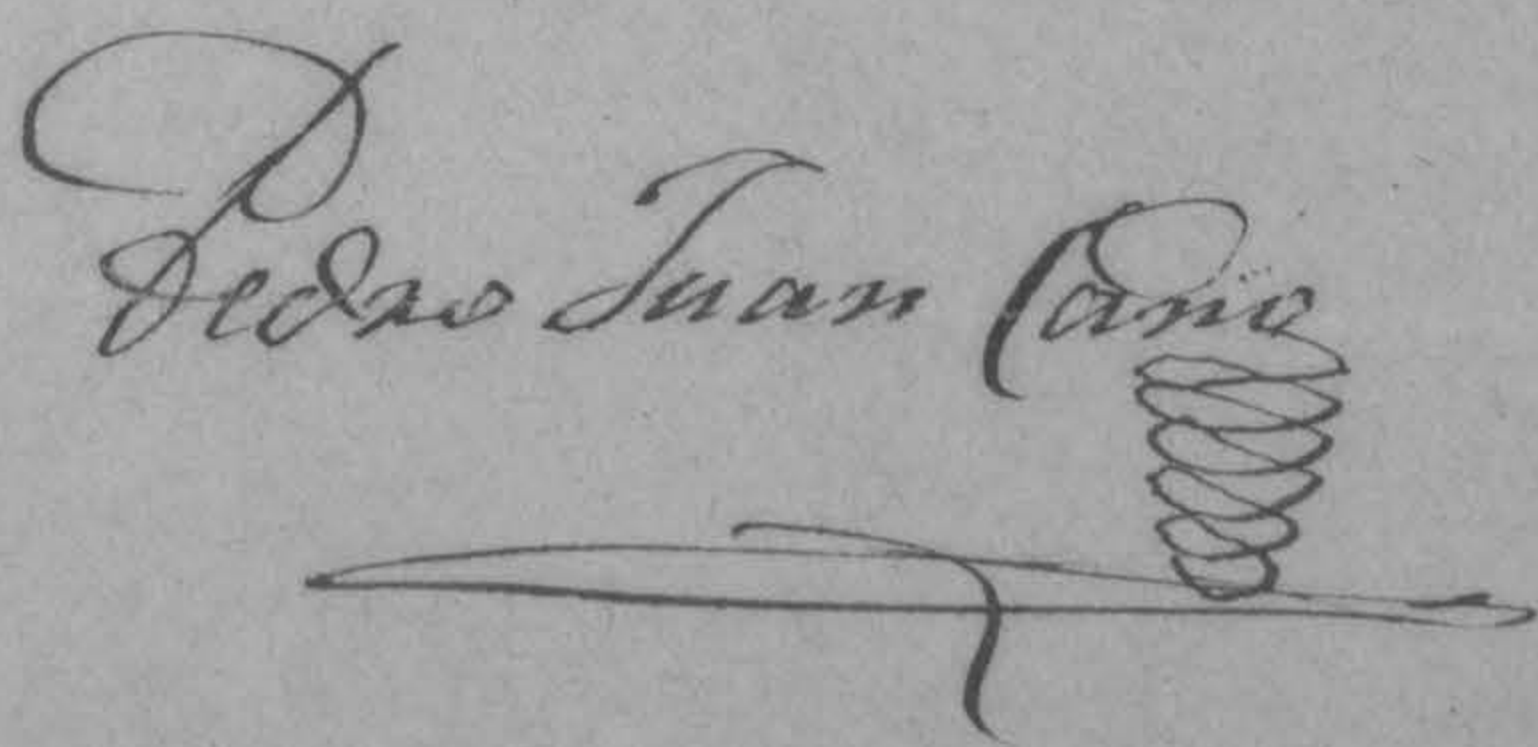 Pedro Juan Cano